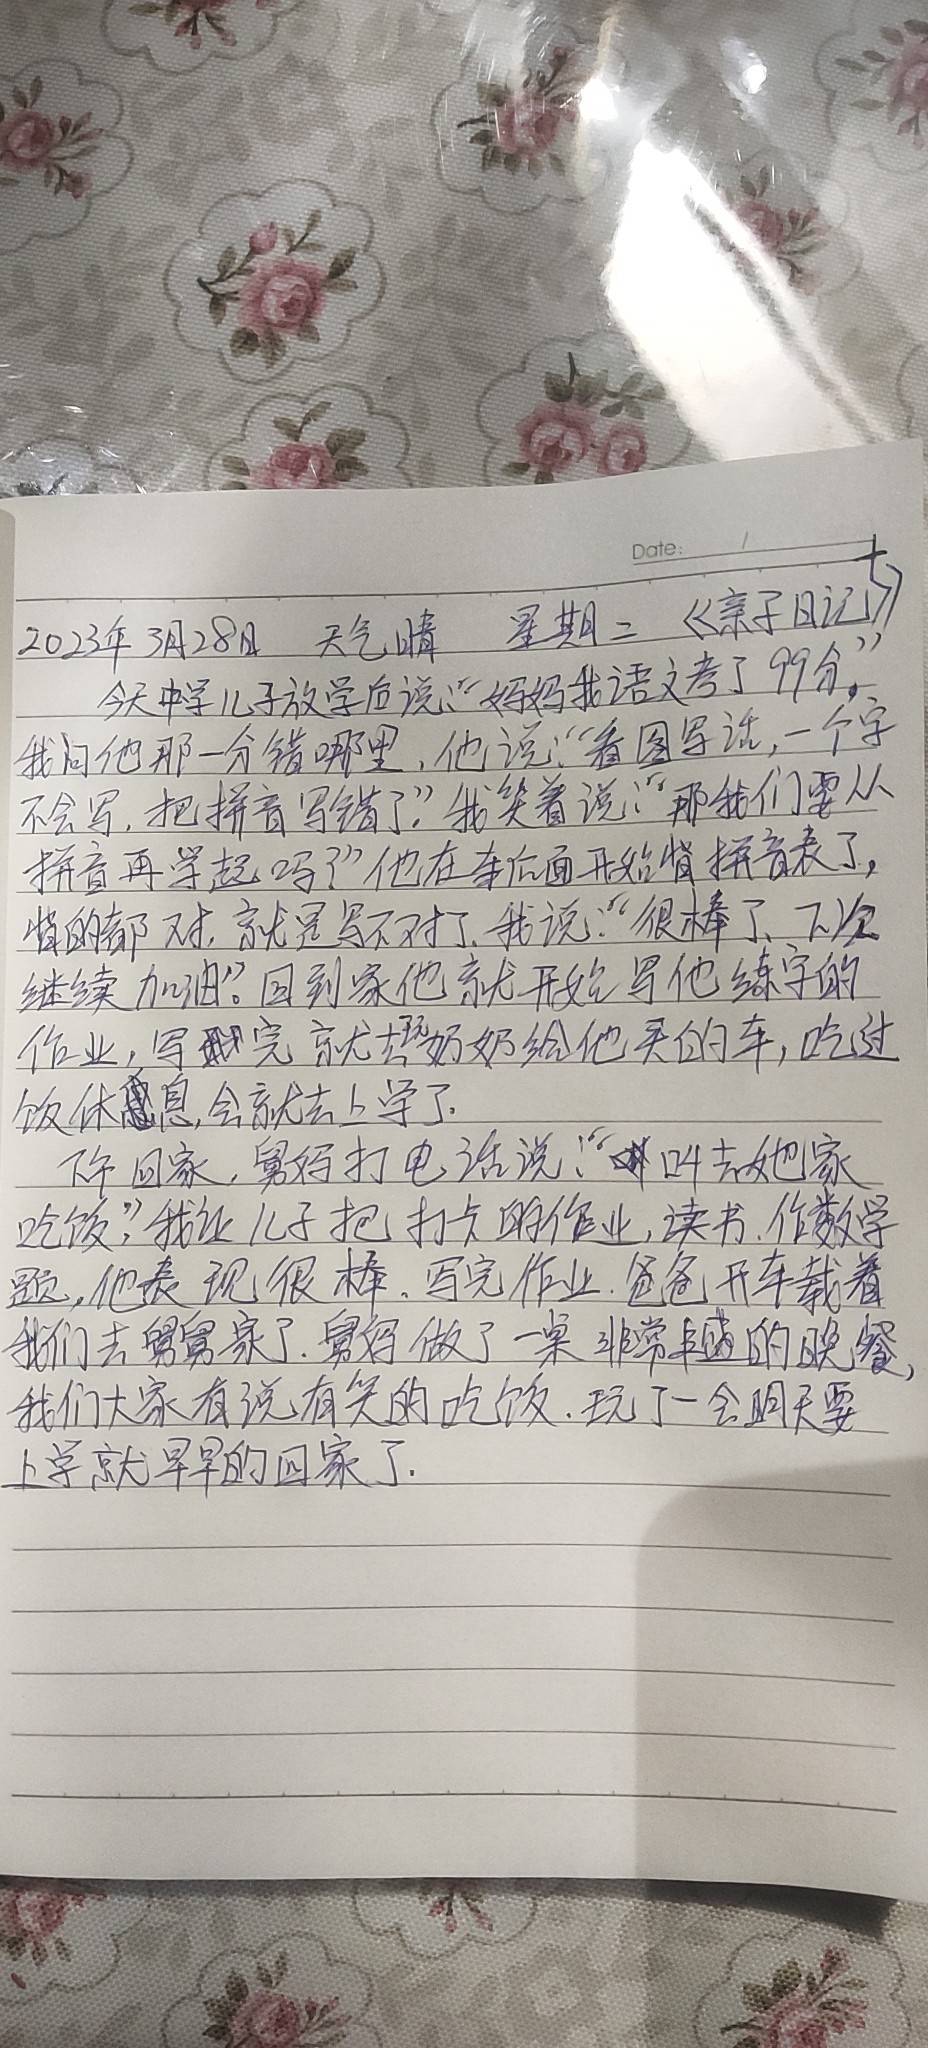 Date: /
十
2023年3月28日 天气晴 星期二 《亲子日记》
今天中学儿子放学后说:“妈妈我语文考了99分”。
我问他那一分错哪里,他说:“看图写话,一个字
不会写,把拼音写错了”。我笑着说:“那我们要从
拼音再学起吗?”他在车后面开始背拼音表了,
背的都对,就是写不对了、我说:“很棒了、下次
继续加油”。回到家他就开始写他练字的
作业,写完就去奶奶给他买的车,吃过
饭休息,会就去上学了.
下午回家,舅妈打电话说:“叫去她家
吃饭”,我让儿子把打卡的作业,读书.作数学
题,他表现很棒.写完作业.爸爸开车载着
我们去舅舅家了.舅妈做了一桌非常丰盛的晚餐,
我们大家有说有笑的吃饭.玩了一会明天要
上学就早早的回家了.